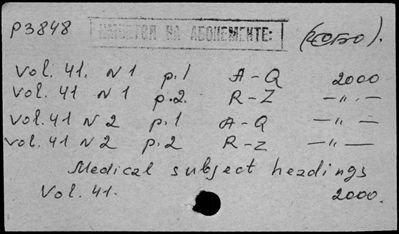 P3848 ИМЕЕТСЯ НА АБОНЕМЕНТЕ:
Vol. 41. N 1 p. 1 A-Q 2000
Vol. 41 N 1 p. 2. R-Z -"-
Vol. 41 N 2 p. 1 A-Q -"-
Vol. 41 N 2 p. 2 R-Z -"-
Medical subject headings
Vol. 41. 2000.